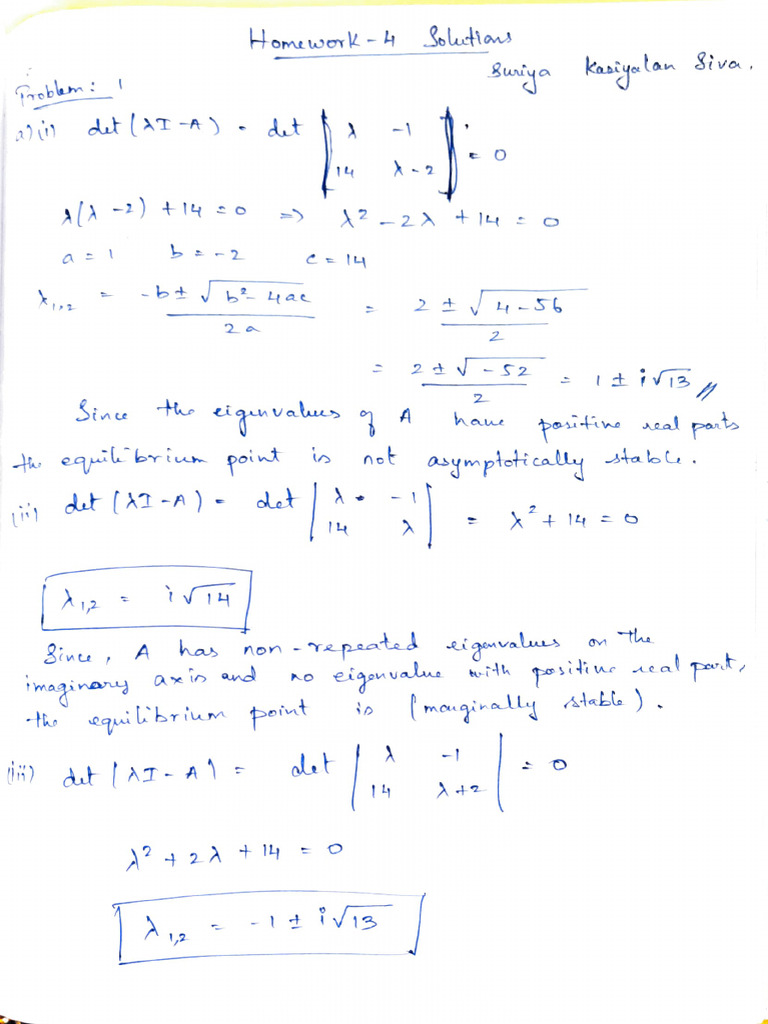 Homework-4 Solutions
Suriya Kasiyalan Siva.
Problem: 1
a)(i) det(λI-A) = det | λ -1 ; 14 λ-2 | = 0
λ(λ-2) + 14 = 0 => λ² - 2λ + 14 = 0
a = 1 b = -2 c = 14
λ₁,₂ = (-b ± √(b² - 4ac)) / 2a = (2 ± √(4-56)) / 2
= (2 ± √-52) / 2 = 1 ± i√13 //
Since the eigenvalues of A have positive real parts
the equilibrium point is not asymptotically stable.
(ii) det(λI-A) = det | λ -1 ; 14 λ | = λ² + 14 = 0
λ₁,₂ = i√14
Since, A has non-repeated eigenvalues on the
imaginary axis and no eigenvalue with positive real part,
the equilibrium point is (marginally stable).
(iii) det(λI-A) = det | λ -1 ; 14 λ+2 | = 0
λ² + 2λ + 14 = 0
λ₁,₂ = -1 ± i√13